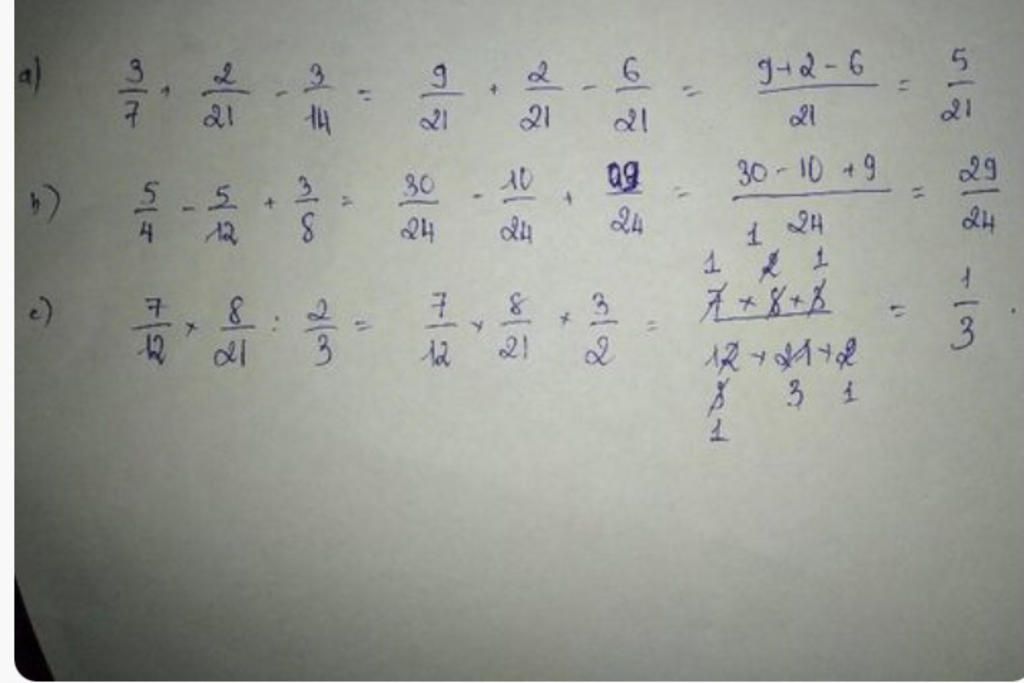 a) 3/7 + 2/21 - 3/14 = 9/21 + 2/21 - 6/21 = (9+2-6)/21 = 5/21
b) 5/4 - 5/12 + 3/8 = 30/24 - 10/24 + 09/24 = (30-10+9)/24 = 29/24
1
1 2 1
c) 7/12 × 8/21 : 2/3 = 7/12 × 8/21 × 3/2 = (7×8×3)/(12×21×2) = 1/3.
3 3 1
1